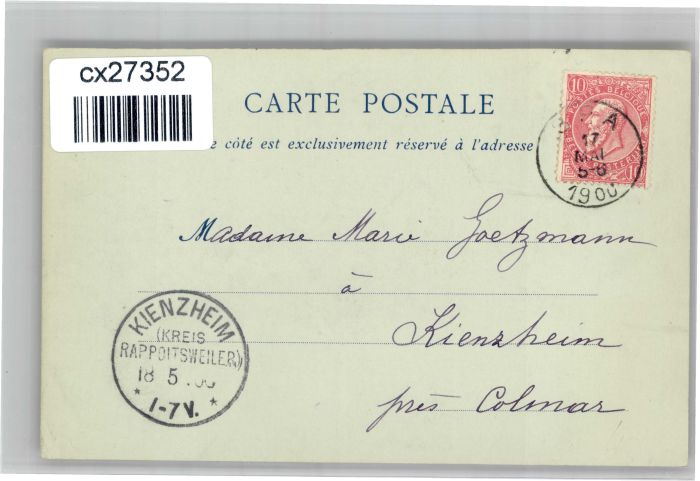 cx27352
CARTE POSTALE
côté est exclusivement réservé à l'adresse
10 10
POSTES BELGIQUE
17
MAI
5-6
1900
Madame Marie Goetzmann
à
Kienzheim
près Colmar
KIENZHEIM
(KREIS
RAPPOITSWEILER)
18 5
1-7V.